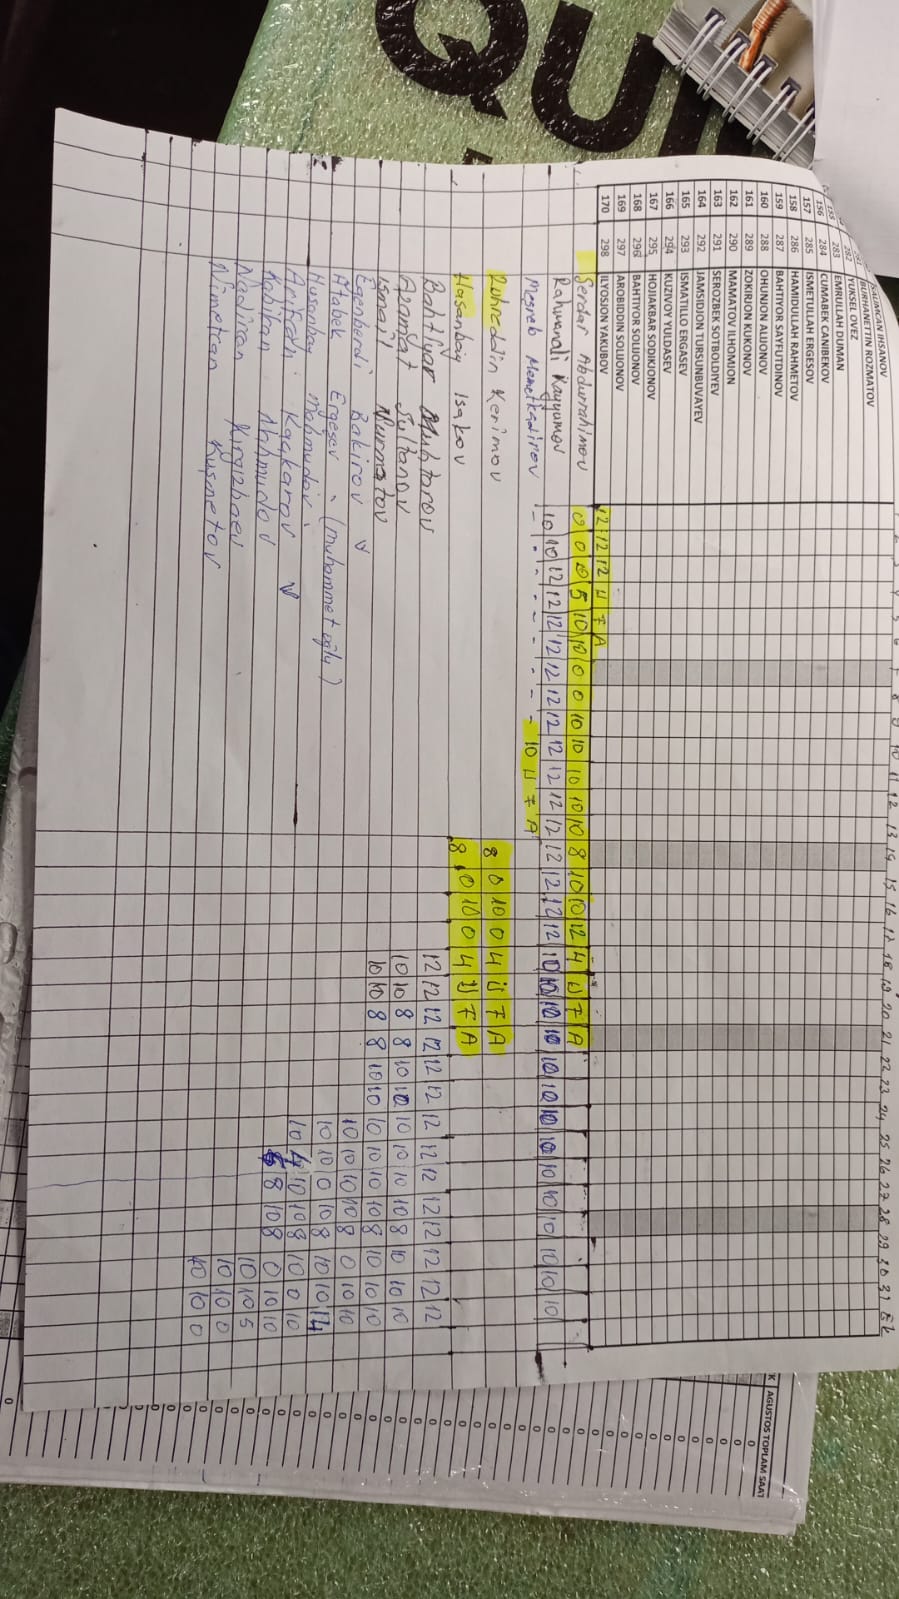 1 2 3 4 5 6 7 8 9 10 11 12 13 14 15 16 17 18 19 20 21 22 23 24 25 26 27 28 29 30 31 EK
SALIMCAN IHSANOV
281 BURHANETTIN ROZMATOV
282 YUKSEL OVEZ
155 283 EMRULLAH DUMAN
156 284 CUMABEK CANIBEKOV
157 285 ISMETULLAH ERGESOV
158 286 HAMIDULLAH RAHMETOV
159 287 BAHTIYOR SAYFUTDINOV
160 288 OHUNJON ALIJONOV
161 289 ZOKIRJON KUKONOV
162 290 MAMATOV ILHOMJON
163 291 SEROZBEK SOTBOLDIYEV
164 292 JAMSIDJON TURSUNBUVAYEV
165 293 ISMATILLO ERGASEV
166 294 KUZIVOY YULDASEV
167 295 HOJIAKBAR SODIKJONOV
168 296 BAHTIYOR SOLIJONOV
169 297 AROBIDDIN SOLIJONOV
170 298 ILYOSJON YAKUBOV 12 12 12 U F A
Serdar Abdurrahimov 0 0 10 5 10 10 0 0 10 10 10 10 10 8 10 10 12 4 U F A
Rahmanali Kayyumov 10 10 12 12 12 12 12 12 12 12 12 12 12 12 12 12 12 10 10 10 10 10 10 10 10 10 10 10 10 10 10
Meşreb Memetkadirov - - - - - - - - - 10 U F A
Zuhreddin Kerimov 8 0 10 0 4 U F A
Hasanboy Isakov 8 0 10 0 4 U F A
Bahtiyar Muhtarov 12 12 12 12 12 12 12 12 12 12 12 12 12 12
Azamat Sultanov 10 10 8 8 10 10 10 10 10 10 8 10 10 10
Ismail Nurmatov 10 10 8 8 10 10 10 10 10 10 8 10 10 10
Egenberdi Bakirov 10 10 10 10 8 0 10 10
Atabek Ergeşev (muhammet oğlu) 10 10 0 10 8 10 10 14
Husanboy Mahmudov 10 4 10 10 8 10 0 10
Arifcan Kaçkarov 8 10 8 0 10 10
Kabilcan Mahmudov 10 10 5
Nadircan Kırgızbaev 10 10 0
Nimetcan Kuşmetov 10 10 0
K AGUSTOS TOPLAM SAAT
0
0
0
0
0
0
0
0
0
0
0
0
0
QU